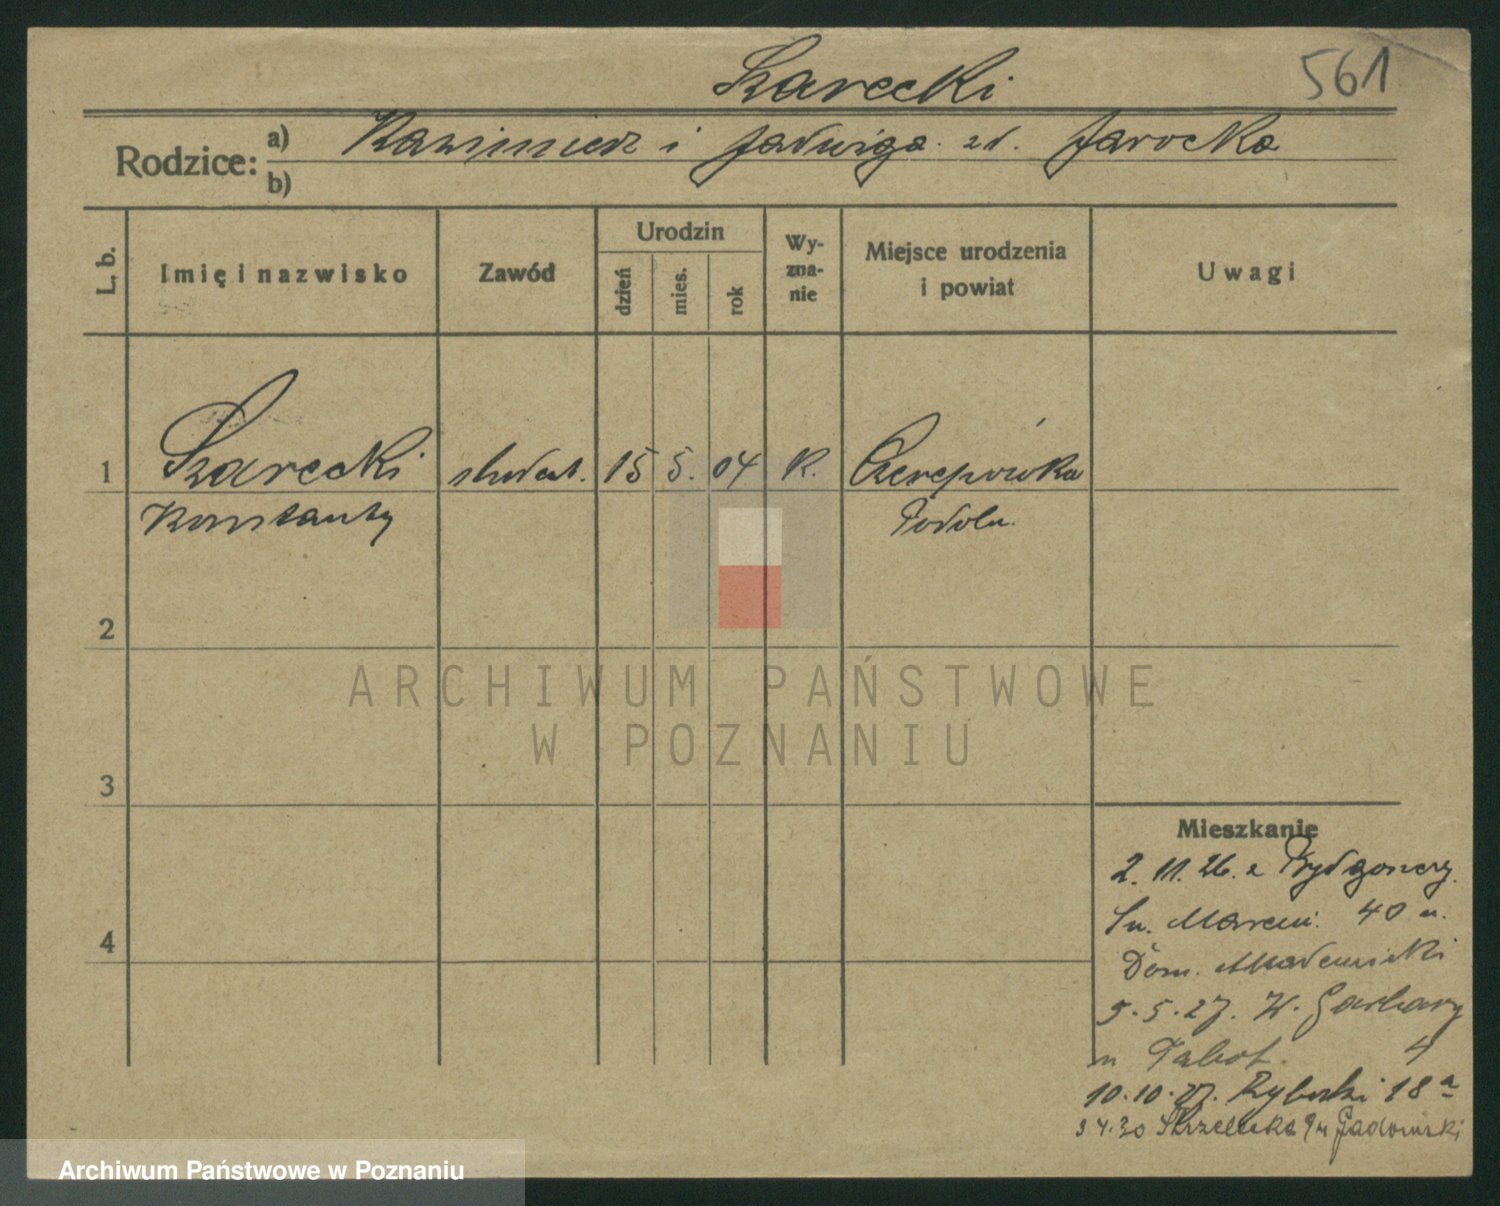 Szarecki
561
Rodzice: a) Kazimierz i Jadwiga zd. Jarocka
b)
L. b.
Imię i nazwisko
Zawód
Urodzin
dzień
mies.
rok
Wy-
zna-
nie
Miejsce urodzenia
i powiat
Uwagi
1 Szarecki student. 15 5. 04 K. Czerepówka
Konstanty Podole.
2
3
4
ARCHIWUM PAŃSTWOWE
W POZNANIU
Mieszkanie
2. 11. 26. z Bydgoszczy.
Św. Marcin. 40 u.
Dom. Akademicki
5. 5. 27. W. Garbary
u 4
10. 10. 27. Rybaki 18a
3 4. 30 Strzelecka
Archiwum Państwowe w Poznaniu